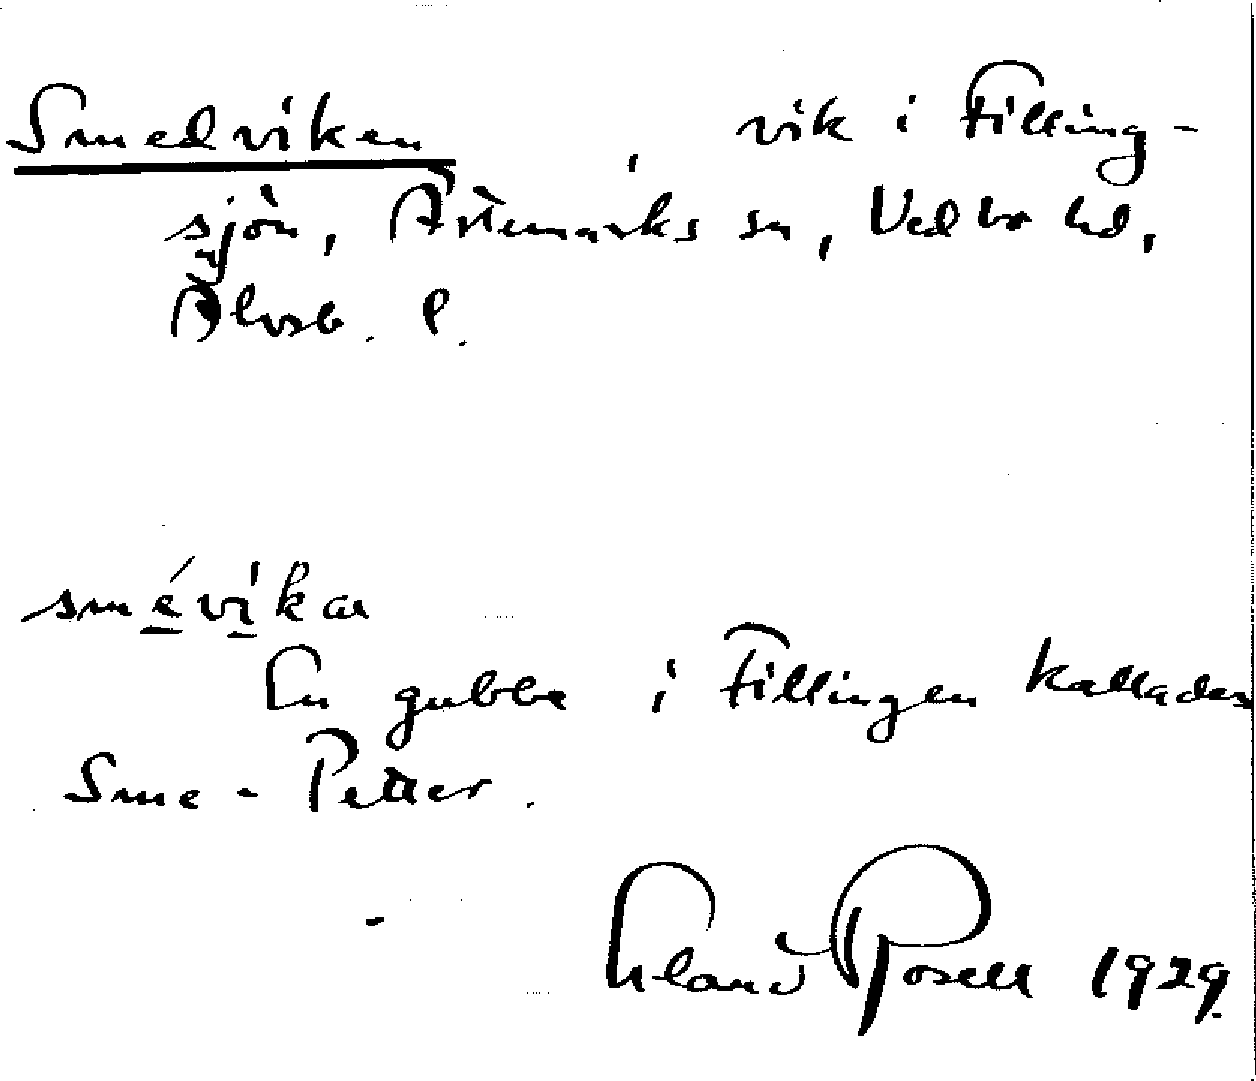 Smedviken, vik i Tilling-
sjön, Ärtemarks sn, Vedbo hd,
Älvsb. l.
smévíkan
En gubbe i Tillingen kallades
Sme-Petter.
Erland Rosell 1929.